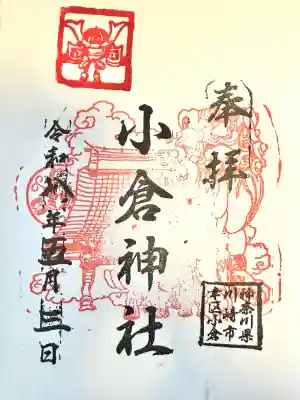 奉拝
神奈川県
川崎市
幸区小倉
小倉神社
令和 年五月三日